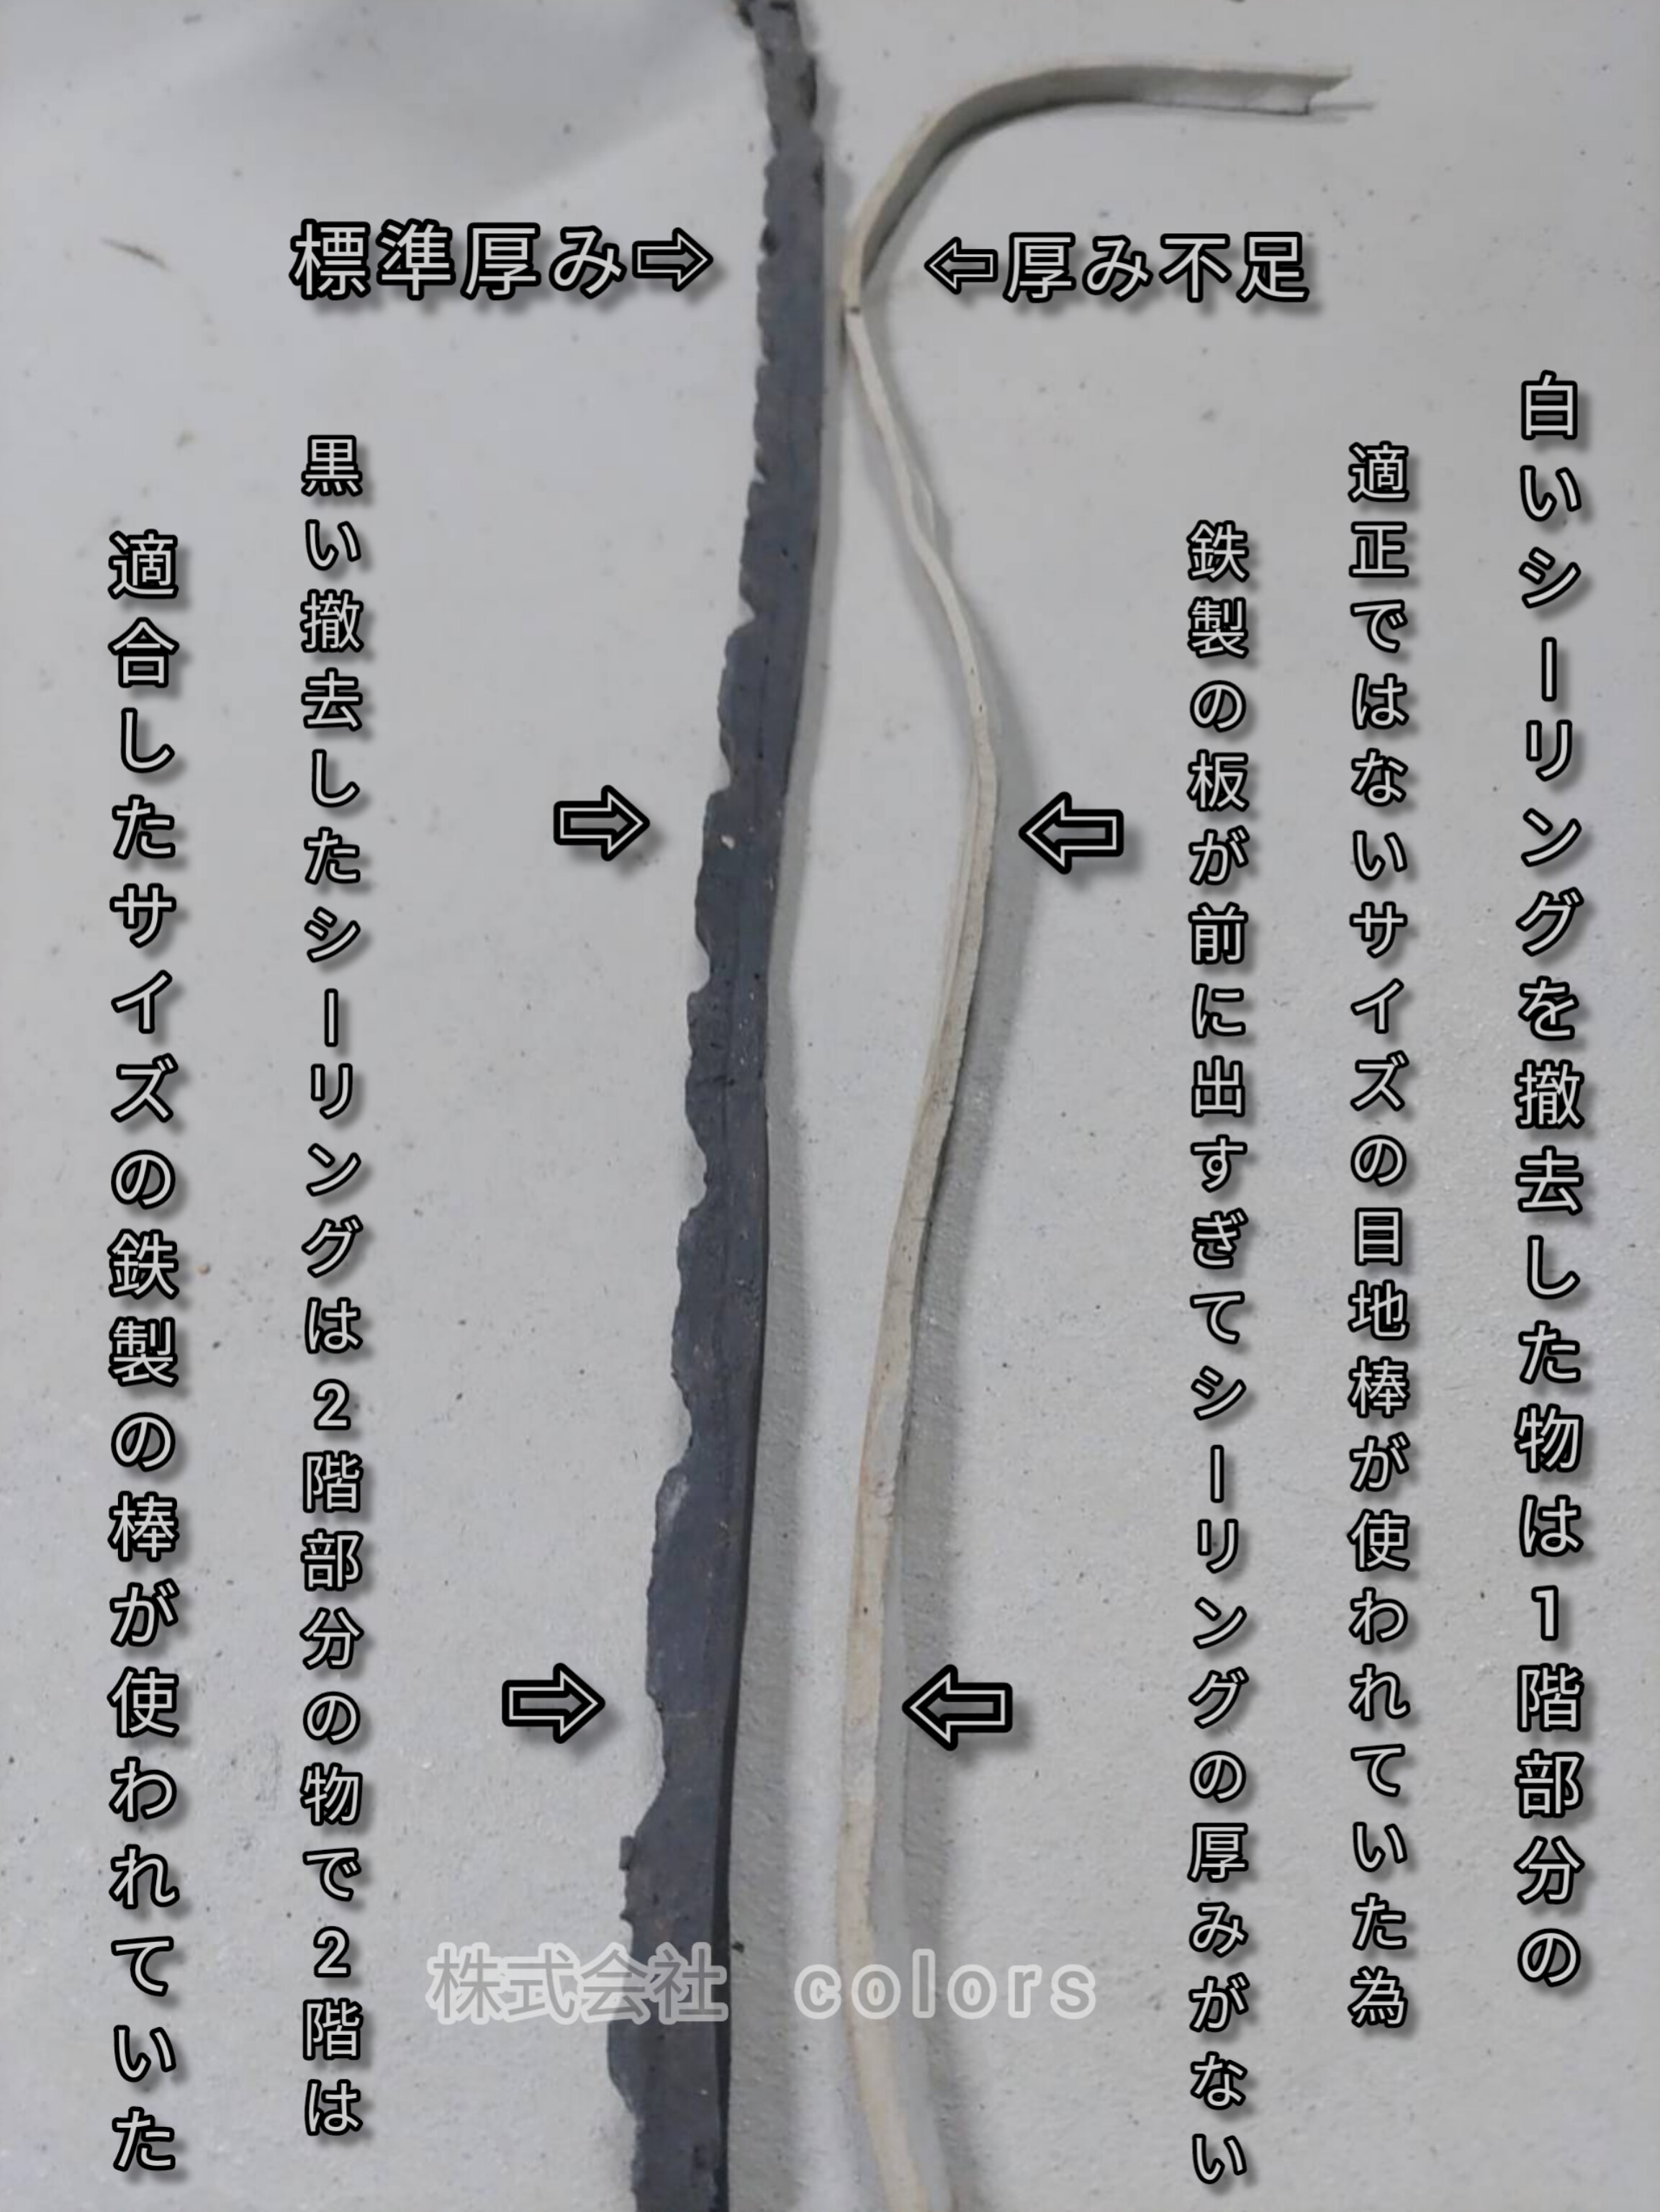 標準厚み⇨
⇦厚み不足
白いシーリングを撤去した物は1階部分の
適正ではないサイズの目地棒が使われていた為
鉄製の板が前に出すぎてシーリングの厚みがない
黒い撤去したシーリングは2階部分の物で2階は
適合したサイズの鉄製の棒が使われていた
株式会社 colors